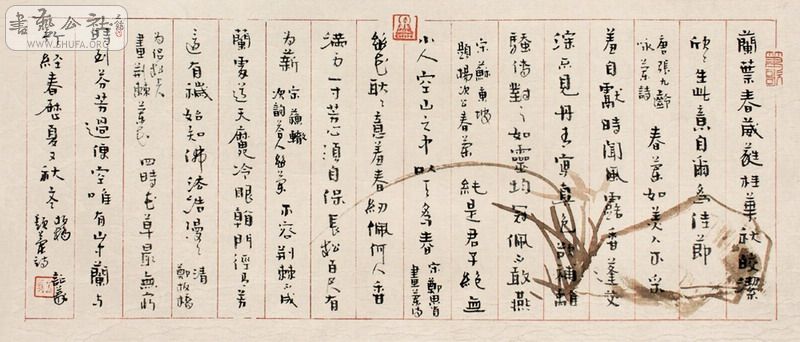 蘭葉春葳蕤桂華秋皎潔
欣々生此意自爾為佳節
唐張九齡
咏蘭詩
春蘭如美人不采
羞自獻時聞風露香蓬艾
深不見丹青寫真色欲補離
騷傳對之如靈均冠佩不敢燕
宋蘇東坡
題楊次公春蘭
純是君子絕無
小人空山之中以天為春
宋鄭思肖
畫蘭詩
幽花耿々意羞春紉佩何人香
滿身一寸芳心須自保長松百尺有
為薪
宋蘇轍
次韵答人幽蘭
不容荊棘不成
蘭外道天魔冷眼看門徑有芳
還有穢始知佛法浩漫々
清
鄭板橋
為侶松上人
畫荊棘蘭花
四時花草最無窮
時到芬芳過便空唯有山中蘭與
經春歷夏又秋冬
板橋
題蘭詩
書藝公社
WWW.SHUFA.ORG